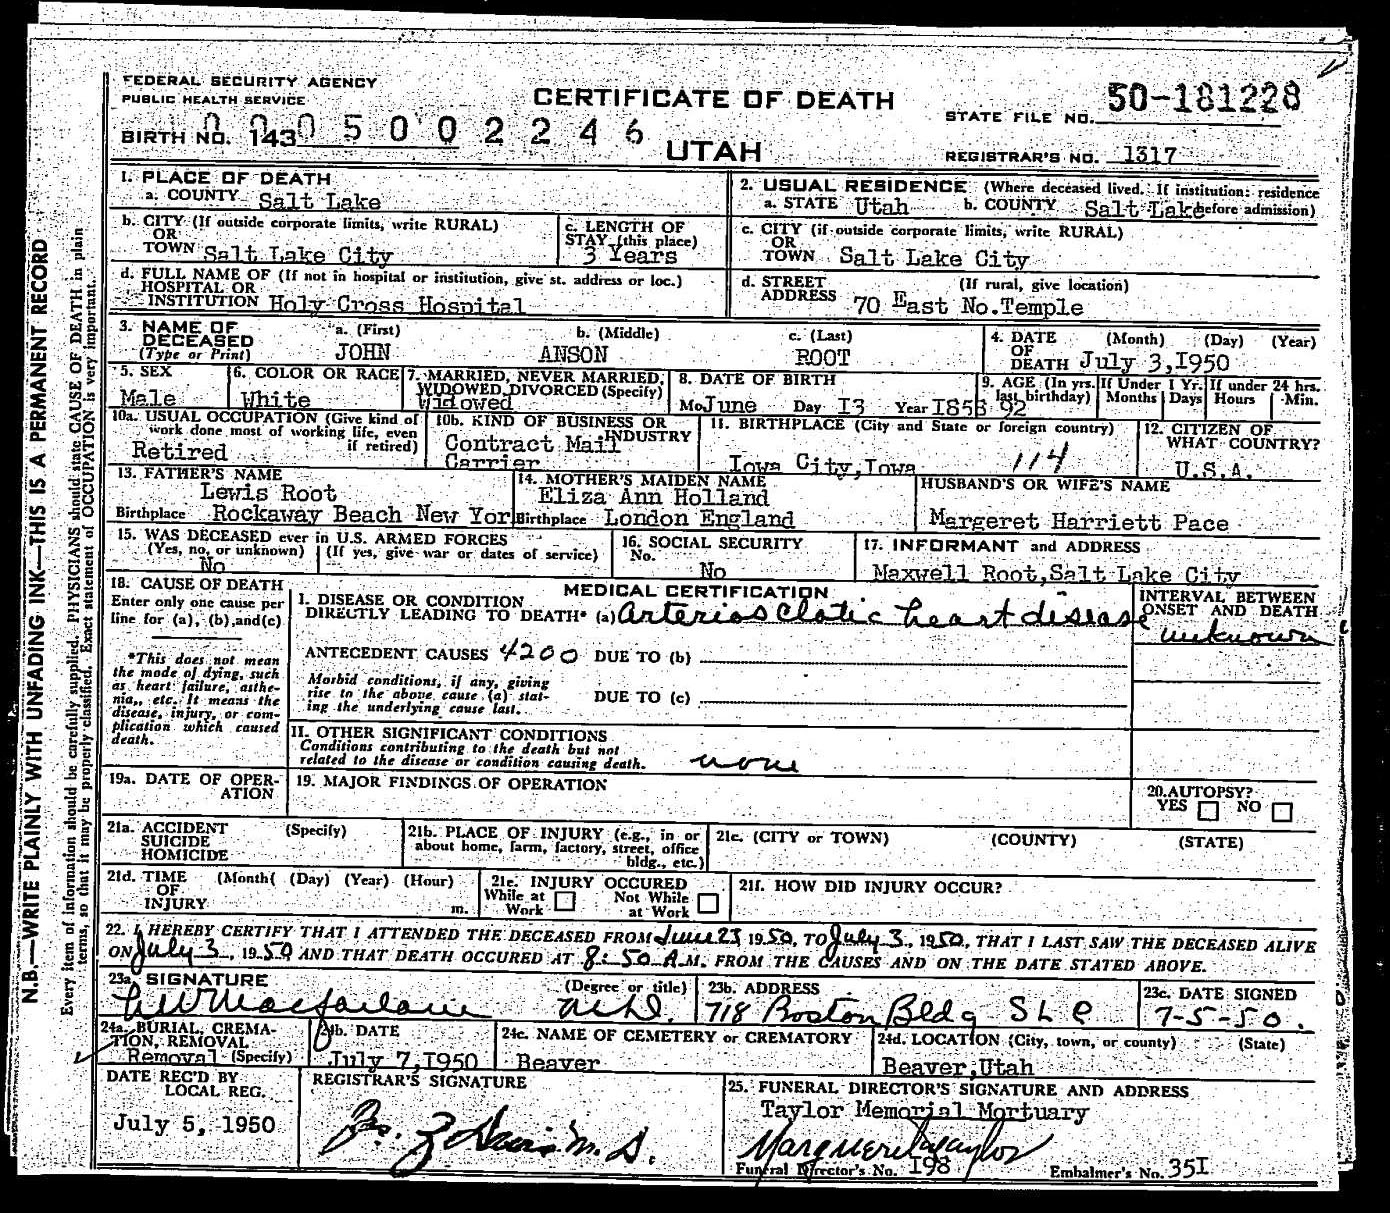 FEDERAL SECURITY AGENCY
PUBLIC HEALTH SERVICE
CERTIFICATE OF DEATH
STATE FILE NO. 50-181228
BIRTH NO. 143 0 0 0 5 0 0 2 2 4 6
UTAH
REGISTRAR'S NO. 1317
1. PLACE OF DEATH
a. COUNTY Salt Lake
2. USUAL RESIDENCE (Where deceased lived. If institution: residence before admission)
a. STATE Utah b. COUNTY Salt Lake
b. CITY (If outside corporate limits, write RURAL)
OR
TOWN Salt Lake City
c. LENGTH OF
STAY (this place)
3 Years
c. CITY (if outside corporate limits, write RURAL)
OR
TOWN Salt Lake City
d. FULL NAME OF (If not in hospital or institution, give st. address or loc.)
HOSPITAL OR
INSTITUTION Holy Cross Hospital
d. STREET (If rural, give location)
ADDRESS 70 East No.Temple
3. NAME OF
DECEASED
(Type or Print)
a. (First) b. (Middle) c. (Last)
JOHN ANSON ROOT
4. DATE (Month) (Day) (Year)
OF
DEATH July 3,1950
5. SEX
Male
6. COLOR OR RACE
White
7. MARRIED, NEVER MARRIED,
WIDOWED DIVORCED (Specify)
Widowed
8. DATE OF BIRTH
Mo June Day 13 Year 1858
9. AGE (In yrs. last birthday)
92
If Under 1 Yr.
Months Days
If under 24 hrs.
Hours Min.
10a. USUAL OCCUPATION (Give kind of
work done most of working life, even
if retired)
Retired
10b. KIND OF BUSINESS OR
INDUSTRY
Contract Mail
Carrier
11. BIRTHPLACE (City and State or foreign country)
Iowa City,Iowa 114
12. CITIZEN OF
WHAT COUNTRY?
U.S.A.
13. FATHER'S NAME
Lewis Root
Birthplace Rockaway Beach New Yor
14. MOTHER'S MAIDEN NAME
Eliza Ann Holland
Birthplace London England
HUSBAND'S OR WIFE'S NAME
Margeret Harriett Pace
15. WAS DECEASED ever in U.S. ARMED FORCES
(Yes, no, or unknown) (If yes, give war or dates of service)
No
16. SOCIAL SECURITY
No.
No
17. INFORMANT and ADDRESS
Maxwell Root,Salt Lake City
18. CAUSE OF DEATH
Enter only one cause per
line for (a), (b),and(c)
*This does not mean
the mode of dying, such
as heart failure, asthe-
nia, etc. It means the
disease, injury, or com-
plication which caused
death.
MEDICAL CERTIFICATION
I. DISEASE OR CONDITION
DIRECTLY LEADING TO DEATH* (a) Arteriosclotic heart disease
INTERVAL BETWEEN
ONSET AND DEATH
unknown
ANTECEDENT CAUSES 4200 DUE TO (b)
Morbid conditions, if any, giving
rise to the above cause (a) stat-
ing the underlying cause last.
DUE TO (c)
II. OTHER SIGNIFICANT CONDITIONS
Conditions contributing to the death but not
related to the disease or condition causing death.
none
19a. DATE OF OPER-
ATION
19. MAJOR FINDINGS OF OPERATION
20. AUTOPSY?
YES NO
21a. ACCIDENT (Specify)
SUICIDE
HOMICIDE
21b. PLACE OF INJURY (e.g., in or
about home, farm, factory, street, office
bldg., etc.)
21c. (CITY or TOWN) (COUNTY) (STATE)
21d. TIME (Month( (Day) (Year) (Hour)
OF
INJURY m.
21e. INJURY OCCURED
While at Work
Not While at Work
21f. HOW DID INJURY OCCUR?
22. I HEREBY CERTIFY THAT I ATTENDED THE DECEASED FROM June 23 1950, TO July 3, 1950, THAT I LAST SAW THE DECEASED ALIVE
ON July 3, 1950 AND THAT DEATH OCCURED AT 8:50 A.M. FROM THE CAUSES AND ON THE DATE STATED ABOVE.
23a. SIGNATURE (Degree or title)
Macfarlane M.D.
23b. ADDRESS
718 Boston Bldg SLC
23c. DATE SIGNED
7-5-50.
24a. BURIAL, CREMA-
TION, REMOVAL
Removal (Specify)
24b. DATE
July 7,1950
24c. NAME OF CEMETERY or CREMATORY
Beaver
24d. LOCATION (City, town, or county) (State)
Beaver,Utah
DATE REC'D BY
LOCAL REG.
July 5, 1950
REGISTRAR'S SIGNATURE
M.D.
25. FUNERAL DIRECTOR'S SIGNATURE AND ADDRESS
Taylor Memorial Mortuary
Marguerite Taylor
Funeral Director's No. 198 Embalmer's No. 351
N.B.—WRITE PLAINLY WITH UNFADING INK—THIS IS A PERMANENT RECORD
Every item of information should be carefully supplied. PHYSICIANS should state CAUSE OF DEATH in plain
terms, so that it may be properly classified. Exact statement of OCCUPATION is very important.